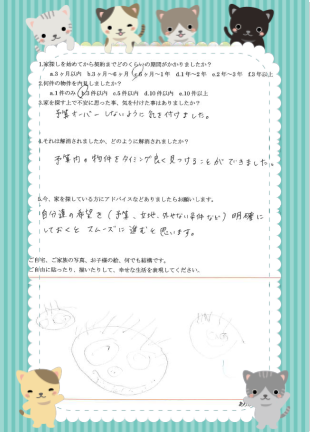 1.家探しを始めてから契約までどのくらいの期間がかかりましたか?
a.3ヶ月以内 b.3ヶ月〜6ヶ月 c.6ヶ月〜1年 d.1年〜2年 e.2年〜3年 f.3年以上
2.何件の物件を内見しましたか?
a.1件のみ b.3件以内 c.5件以内 d.10件以内 e.10件以上
3.家を探す上で不安に思った事、気を付けた事はありましたか?
予算オーバーしないように気を付けました。
4.それは解消されましたか、どのように解消されましたか?
予算内の物件をタイミング良く見つけることができました。
5.今、家を探している方にアドバイスなどありましたらお願いします。
自分達の希望を(予算、立地、外せない条件など)明確に
しておくとスムーズに進むと思います。
ご自宅、ご家族の写真、お子様の絵、何でも結構です。
ご自由に貼ったり、描いたりして、幸せな生活を表現してください。